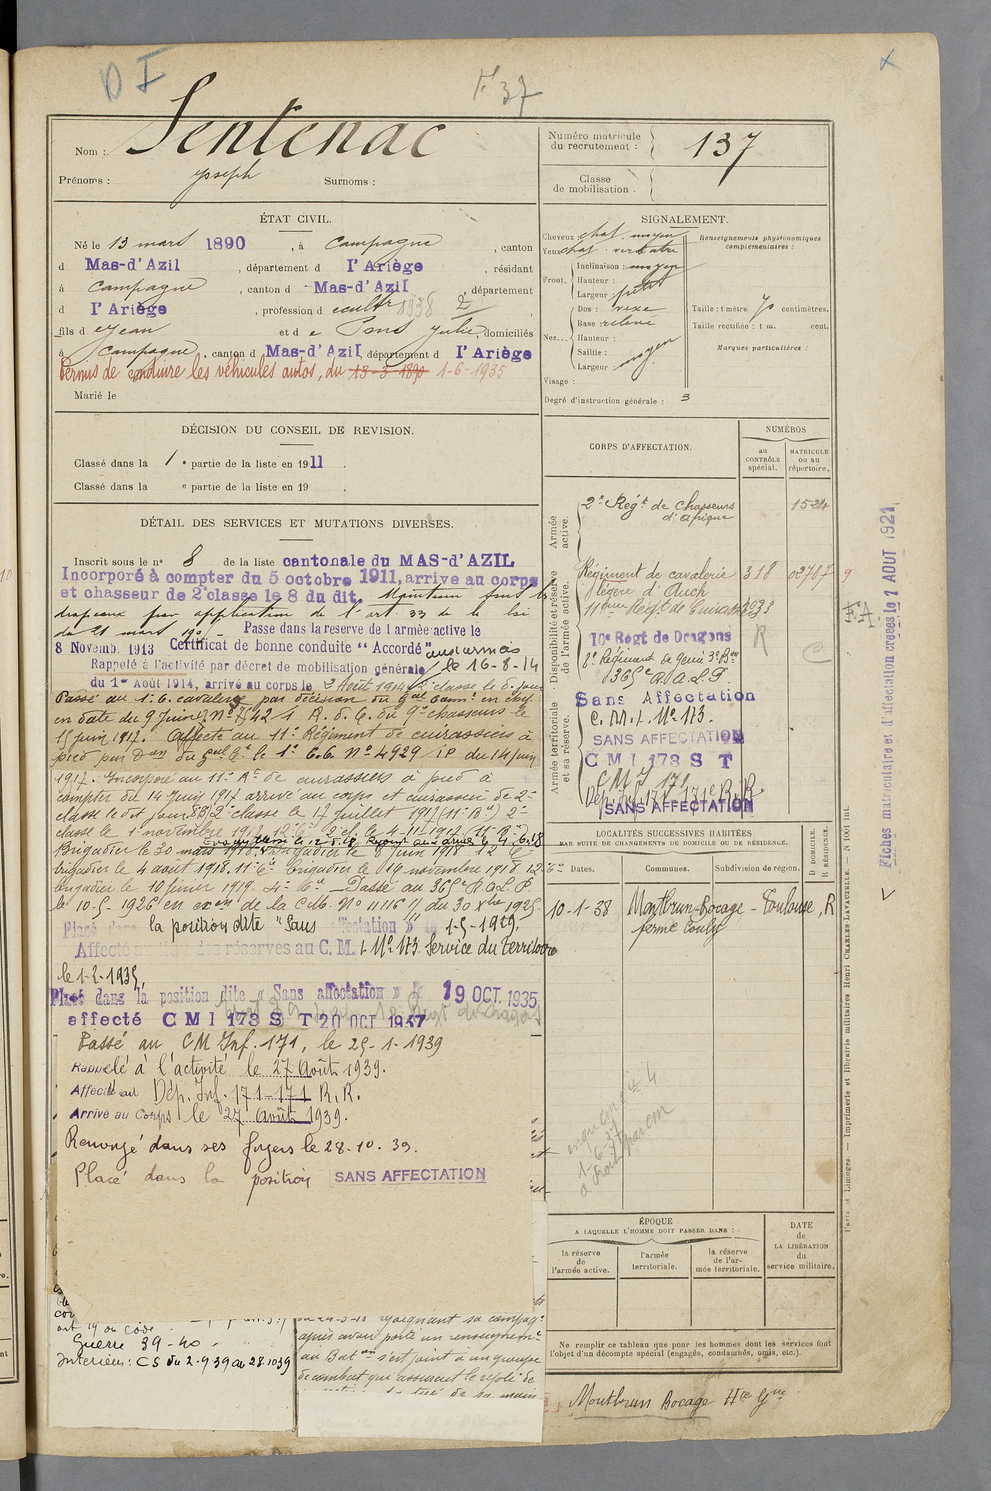 D I
F 37
Nom : Sentenac
Prénoms : Joseph Surnoms :
Numéro matricule du recrutement : 137
Classe de mobilisation :
ÉTAT CIVIL.
Né le 13 mars 1890, à Campagne, canton
d Mas-d'Azil, département d l'Ariège, résidant
à Campagne, canton d Mas-d'Azil, département
d l'Ariège, profession d cultr 1938 2
fils d e Jean et d e Pons Julie, domiciliés
à Campagne, canton d Mas-d'Azil, département d l'Ariège
Permis de conduire les véhicules autos, du 13-3-1890 1-6-1935
Marié le
SIGNALEMENT.
Cheveux chat. moyen
Yeux chat. verdatre
Front.
Inclinaison : moyen
Hauteur :
Largeur : petit
Nez...
Dos : vexe
Base : relevé
Hauteur :
Saillie : moyen
Largeur :
Visage :
Degré d'instruction générale : 3
Renseignements physionomiques complémentaires :
Taille : 1 mètre 70 centimètres.
Taille rectifiée : 1 m. cent.
Marques particulières :
DÉCISION DU CONSEIL DE REVISION.
Classé dans la 1e partie de la liste en 1911.
Classé dans la e partie de la liste en 19
DÉTAIL DES SERVICES ET MUTATIONS DIVERSES.
Inscrit sous le n° 8 de la liste cantonale du MAS-d'AZIL
Incorporé à compter du 5 octobre 1911, arrive au corps
et chasseur de 2e classe le 8 du dit. Maintenu sous les
drapeaux par application de l'art 33 de la loi
de 21 mars 190 - Passe dans la reserve de l'armée active le
8 Novemb. 1913 Certificat de bonne conduite " Accordé "
Rappelé à l'activité par décret de mobilisation générale
le 16-8-14
du 1er Août 1914, arrivé au corps le 3 Août 1914 classe le 6 jour
Passé au 1er C. cavalerie par décision du Gal Comt en chef
en date du 9 Juin 1917 N° 8742 1 R. d. C. du 9e chasseurs le
15 juin 1917. Affecté au 11e Régiment de cuirassiers à
pied par Don du Gal Ct le 1er C.C. N° 4929 1P du 14 juin
1917. Incorporé au 11e Rt de cuirassiers à pied à
compter du 14 Juin 1917 arrivé au corps et cuirassier de 2e
classe le dit jour. 2e classe le 17 juillet 1917 2e
classe le 1er novembre 1917 12e Ct 2e cl. le 4-11-1917
Brigadier le 30 mars 1918. Brigadier le 8 juin 1918 12 Ct
brigadier le 4 août 1918. 11e Ct brigadier le 19 novembre 1918 12e Ct
brigadier le 10 février 1919. 4e Ct - Passé au 365e R.A.L.P.
le 10-5-1926 en exon de la Circ. N° 11116 1/1 du 30 Xbre 1925
Placé dans la position dite "Sans affectation" le 1-5-1929.
Affecté des réserves au C. M. I. N° 173 Service du Territoire
le 1-2-1935.
Placé dans la position dite « Sans affectation » le 19 OCT. 1935
affecté C M I 173 S T 20 OCT 1937
Passé au CM Inf. 171, le 25-1-1939
Rappelé à l'activité le 27 Août 1939.
Affecté au Dép. Inf. 171-171 R.R.
Arrivé au Corps le 27 Août 1939.
Renvoyé dans ses foyers le 28.10.39.
Placé dans la position SANS AFFECTATION
art 19 du code
Guerre 39-40
Interieur : CS du 2-9-39 au 28-10-39
du 24-3-18 rejoignant sa compagnie
après avoir porté un renseignement
au Baton s'est joint à un groupe
de combat qui assurait le repli de
CORPS D'AFFECTATION.
NUMÉROS
au CONTRÔLE spécial.
MATRICULE ou au répertoire.
Armée active.
2e Régt de Chasseurs d'Afrique 1524
Disponibilité et réserve de l'armée active.
Régiment de cavalerie légère d'Auch 318 02787
11ème Régt de Cuirassiers 3093
10e Régt de Dragons R
8e Régiment de Génie 3e Bon C
365e R.A.L.P.
Armée territoriale et sa réserve.
Sans Affectation
C. M. I. N° 173.
SANS AFFECTATION
C M I 173 S T
CM I 171
Dép. Inf. 171-171e R.R.
SANS AFFECTATION
LOCALITÉS SUCCESSIVES HABITÉES
PAR SUITE DE CHANGEMENTS DE DOMICILE OU DE RÉSIDENCE.
Dates. Communes. Subdivision de région. D. DOMICILE. R. RÉSIDENCE.
10-1-38 Montbrun-Bocage - Toulouse, R
ferme Couly
1-6-37
ÉPOQUE
A LAQUELLE L'HOMME DOIT PASSER DANS :
la réserve de l'armée active.
l'armée territoriale.
la réserve de l'armée territoriale.
DATE de LA LIBÉRATION du service militaire.
Ne remplir ce tableau que pour les hommes dont les services font
l'objet d'un décompte spécial (engagés, condamnés, omis, etc.).
Montbrun Bocage Hte Gne
Fiches matriculaire et d'affectation créées le 1 AOUT 1921
F.A.
Paris et Limoges. — Imprimerie et librairie militaires Henri CHARLES-LAVAUZELLE. — N° 1006 bis.